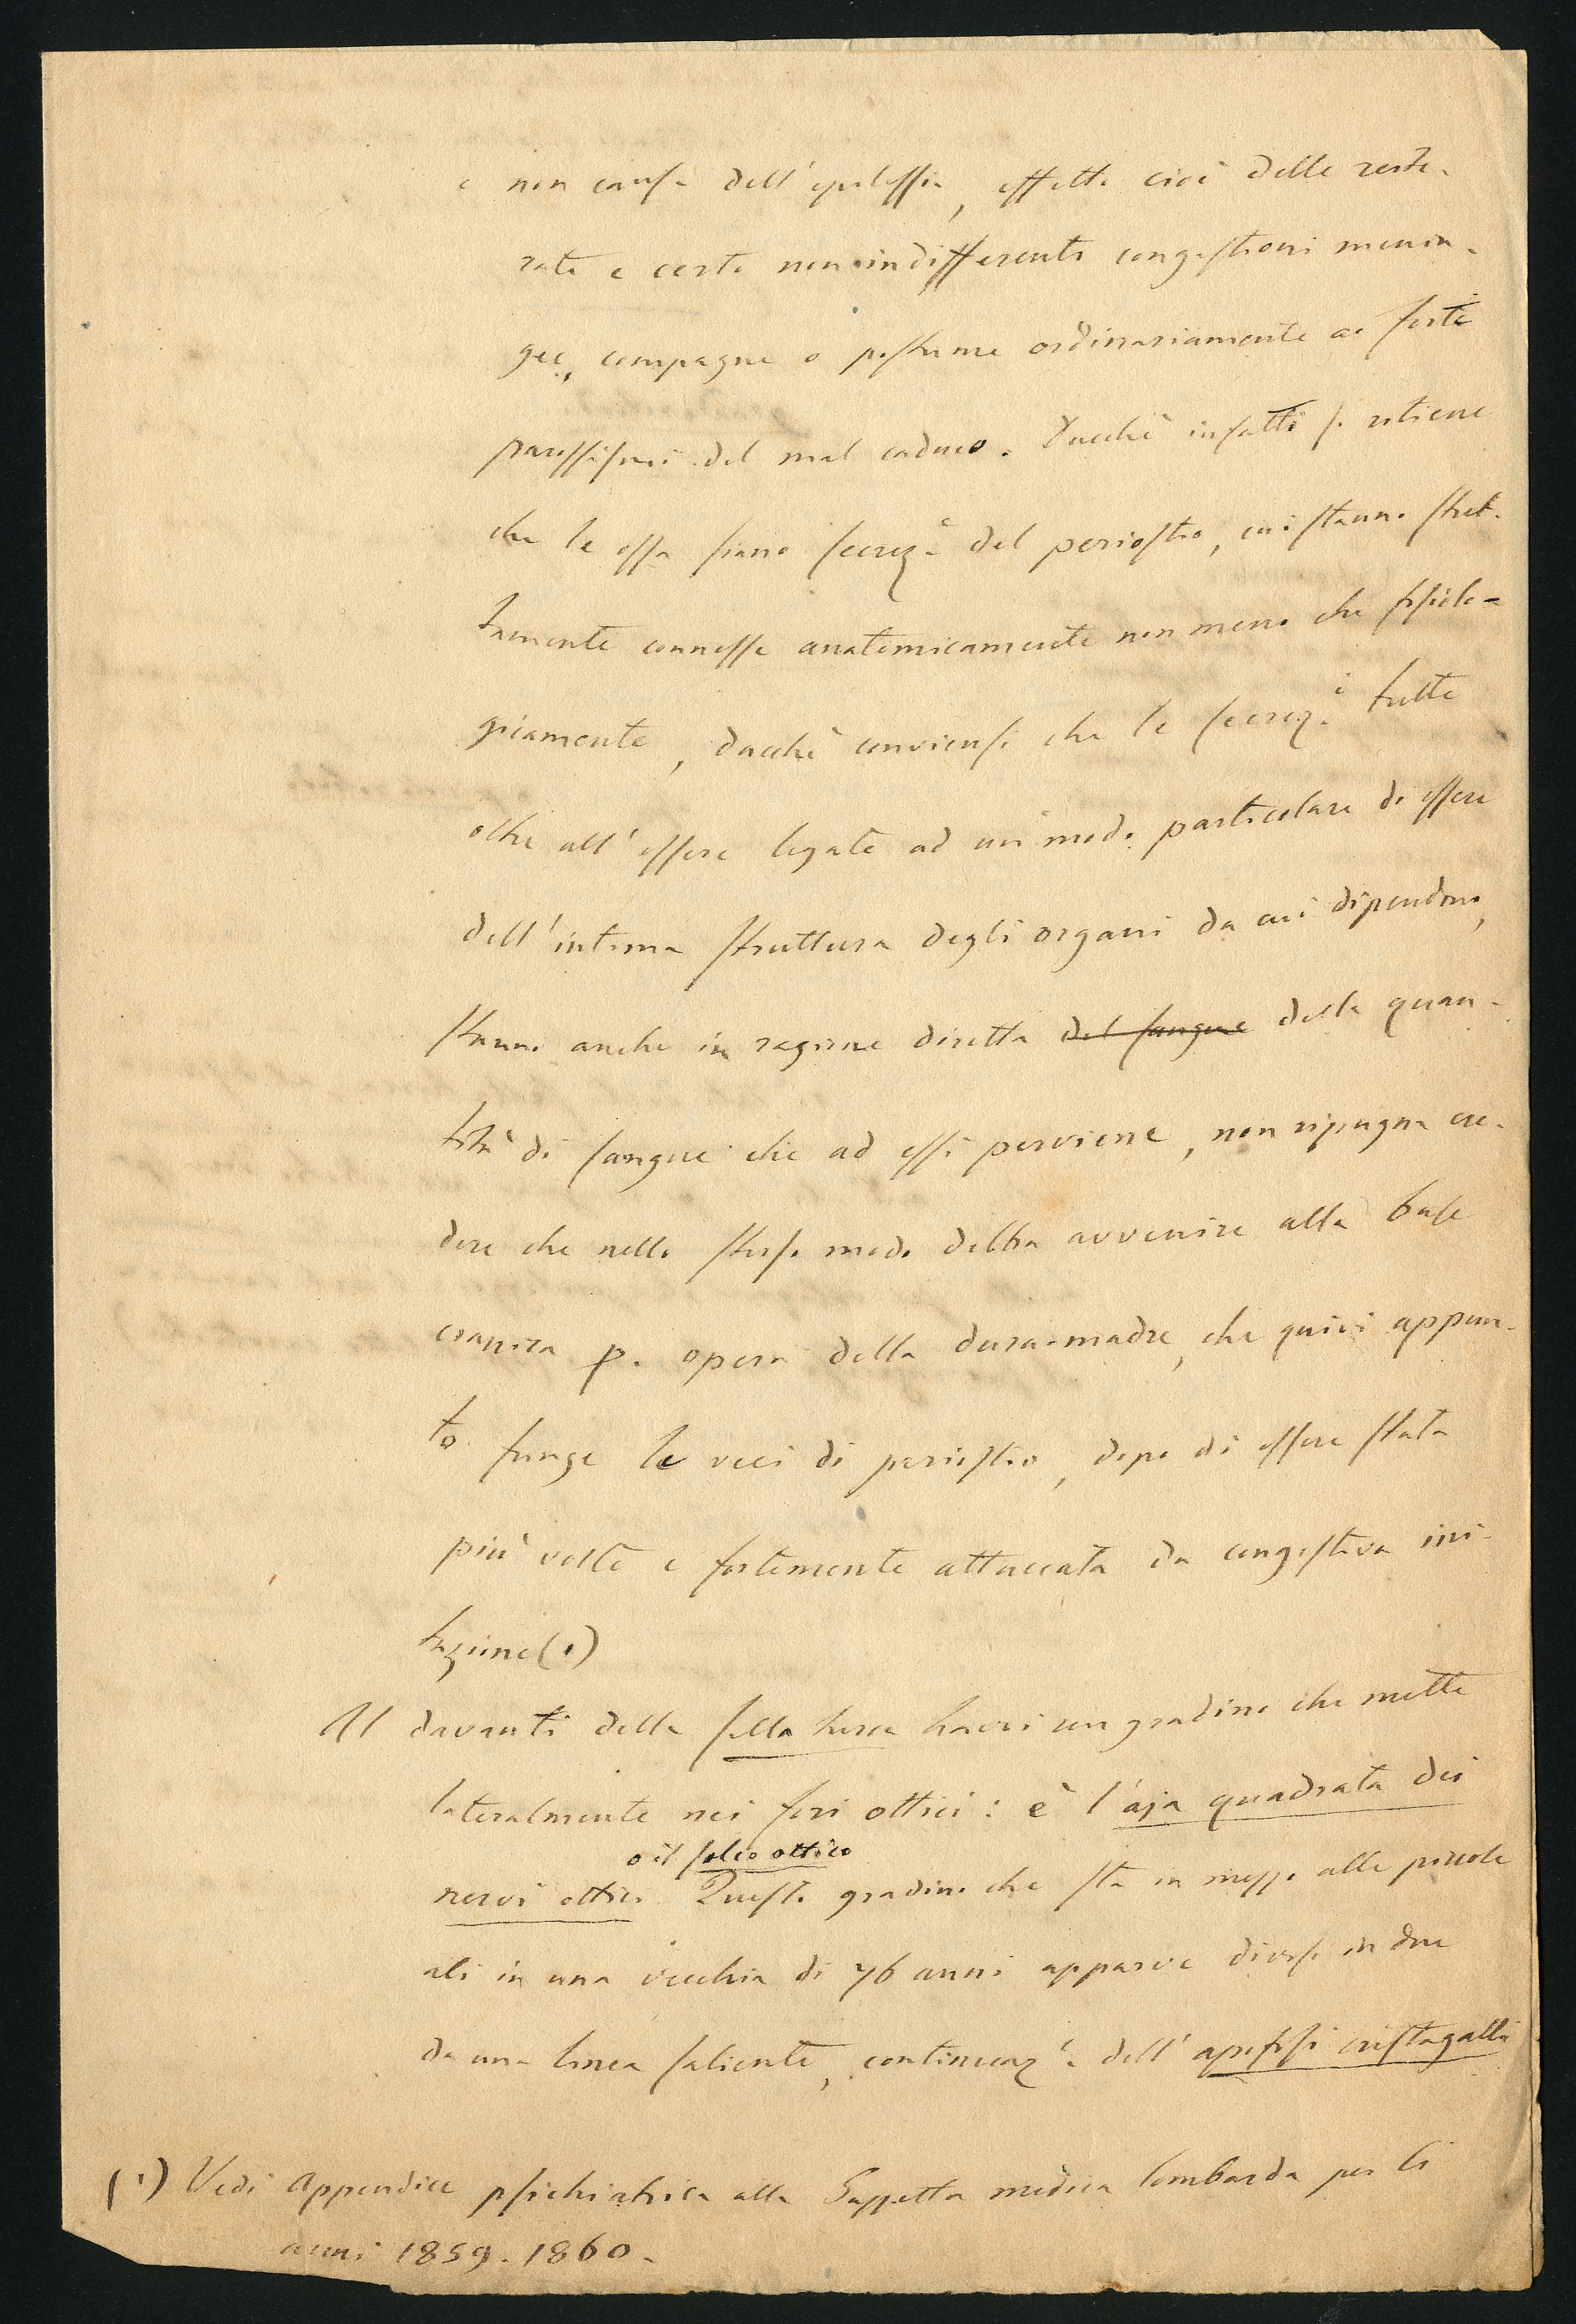 e non causa dell'epilessia, effetto cioè delle reite-
rate e certo non indifferenti congestioni menin-
gee, compagne o postume ordinariamente ai forti
parossismi del mal caduco. Dacchè infatti si ritiene
che le ossa siano secrez.e del periostio, cui stanno stret-
tamente connesse anatomicamente non meno che fisiolo-
gicamente, dacchè conviensi che le secrez.i tutte
oltre all'essere legate ad un modo particolare di essere
dell'intima struttura degli organi da cui dipendono,
stanno anche in ragione diretta del sangue della quan-
tità di sangue che ad essi perviene, non ripugna cre-
dere che nello stesso modo debba avvenire alla base
cranica p. opera della dura-madre, che quivi appun-
to funge le veci di periostio, dopo di essere stata
più volte e fortemente attaccata da congestiva irri-
tazione (1)
Al davanti della sella turca havvi un gradino che mette
lateralmente nei fori ottici: è l'aja quadrata dei
o il solco ottico
nervi ottici. Questo gradino che sta in mezzo alle piccole
ali in una vecchia di 76 anni apparve diviso in due
da una linea saliente, continuaz.e dell'apofisi cristagalli
(1) Vedi Appendice psichiatrica alla Gazzetta medica lombarda per li
anni 1859. 1860.